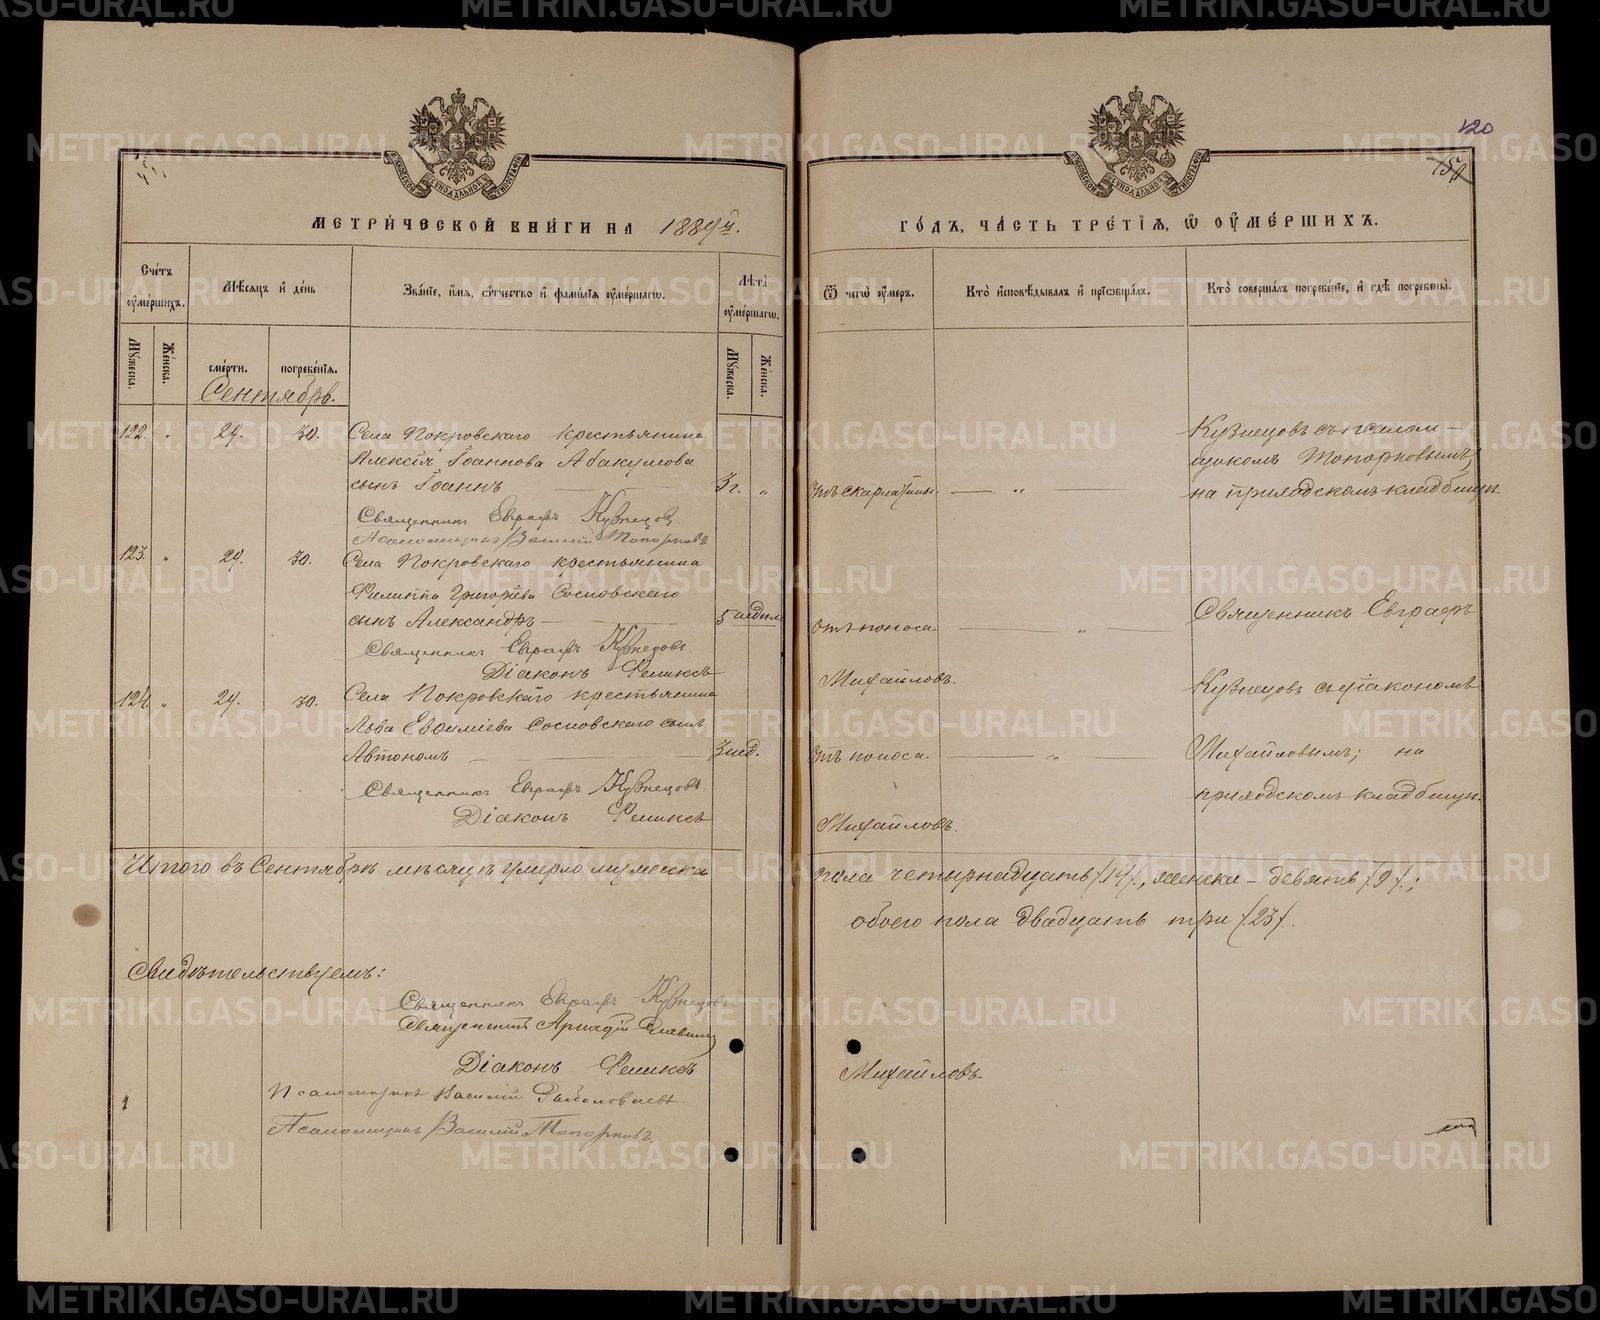 120
159
МЕТРИЧЕСКОЙ КНИГИ НА 1889й. ГОДЪ, ЧАСТЬ ТРЕТІЯ, Ѡ ОУМЕРШИХЪ.
Счетъ оумершихъ.
Мѣсяцъ и день
Званіе, имя, отчество и фамилія оумершаго.
Лѣта оумершаго.
Ѿ чего оумеръ.
Кто исповѣдывалъ и пріобщалъ.
Кто совершалъ погребеніе, и гдѣ погребены.
Мужеска.
Женска.
смерти.
погребенія.
Мужеска.
Женска.
Сентябрь.
122. „ 29. 30. Села Покровскаго крестьянина
Алексія Іоаннова Абакумова
сынъ Іоаннъ — 3 г. „ отъ скарлатины. — „ —
Кузнецовъ съ псалом-
щикомъ Топорковымъ;
на приходскомъ кладбищѣ.
Священникъ Евграфъ Кузнецовъ.
Псаломщикъ Василій Топорковъ
123. „ 29. 30. Села Покровскаго крестьянина
Филиппа Григоріева Сосновскаго
сынъ Александръ — 5 недѣль отъ поноса. — „ —
Священникъ Евграфъ
Священникъ Евграфъ Кузнецовъ
Діаконъ Феликсъ Михайловъ.
124. „ 29. 30. Села Покровскаго крестьянина
Льва Евфиміева Сосновскаго сынъ
Автономъ — 3 нед. отъ поноса. — „ —
Кузнецовъ съ діакономъ
Михайловымъ; на
приходскомъ кладбищѣ.
Священникъ Евграфъ Кузнецовъ.
Діаконъ Феликсъ Михайловъ.
Итого въ Сентябрѣ мѣсяцѣ умерло мужеска пола четырнадцать /14/, женска – девять /9/;
обоего пола двадцать три /23/.
Свидѣтельствуемъ:
Священникъ Евграфъ Кузнецовъ
Священникъ Аркадій
Діаконъ Феликсъ Михайловъ
Псаломщикъ Василій
Псаломщикъ Василій Топорковъ.
METRIKI.GASO-URAL.RU